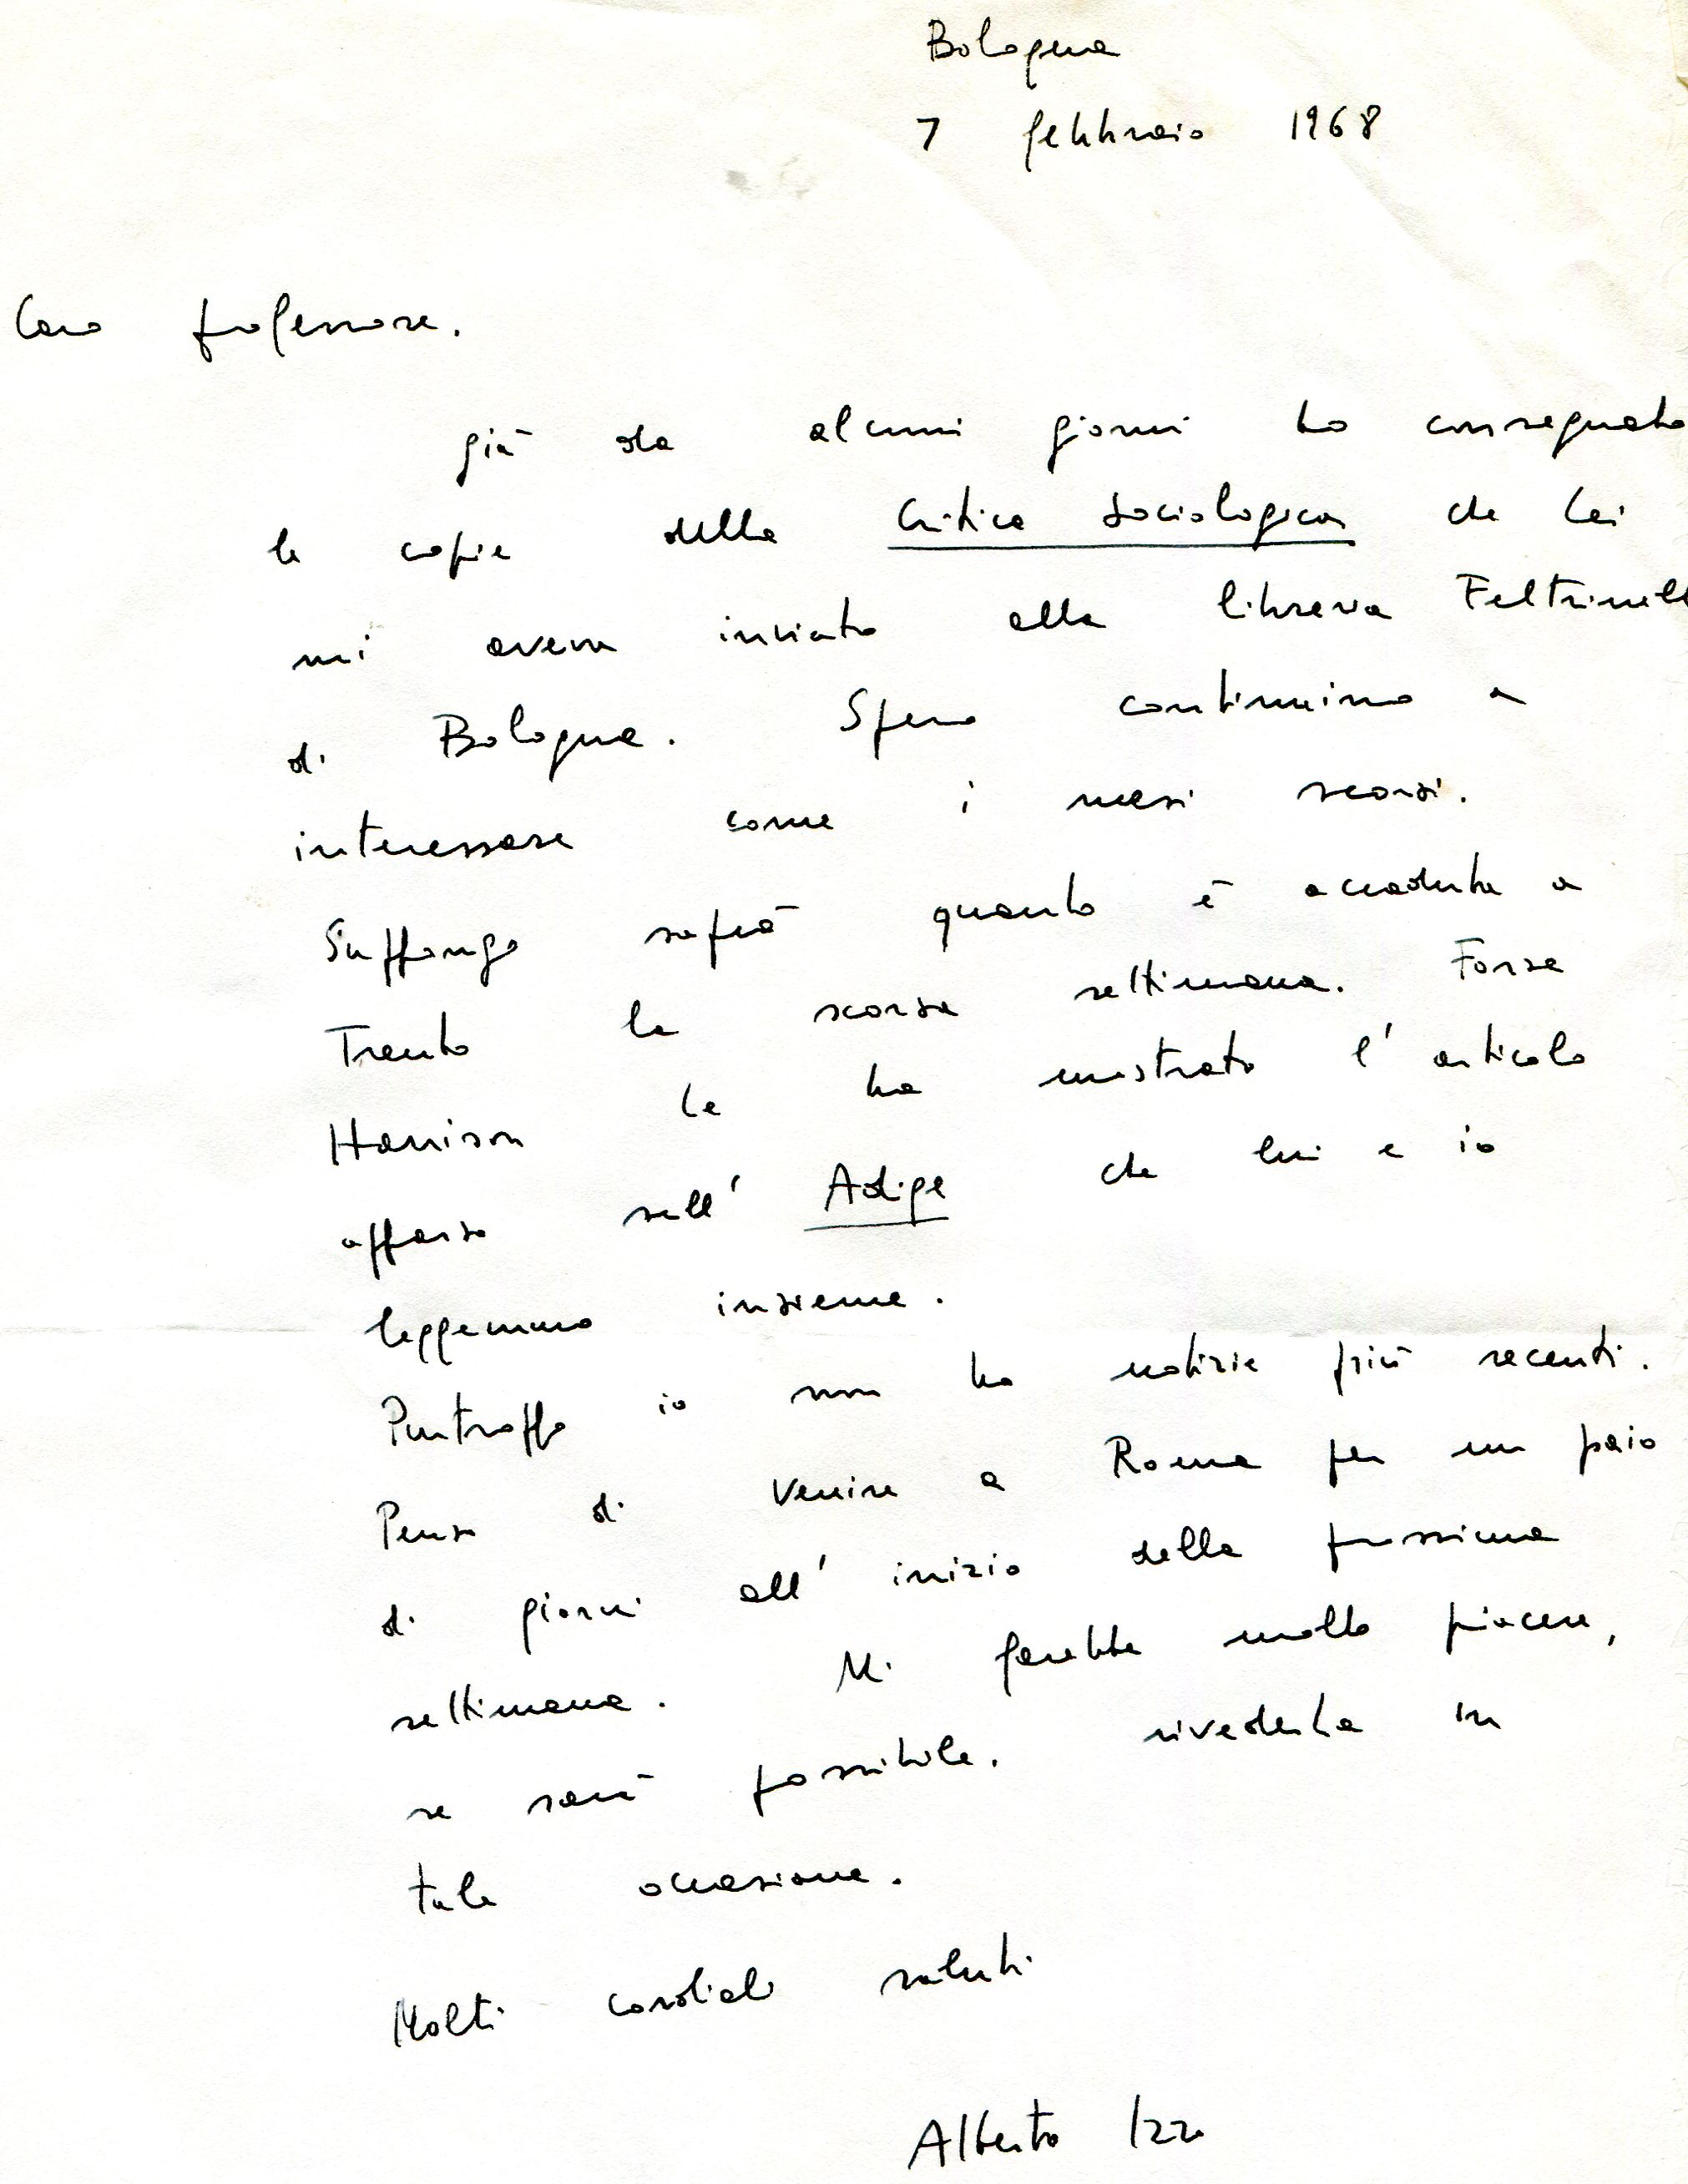 Bologna
7 febbraio 1968
Caro professore.
già da alcuni giorni ho consegnato
le copie della Critica Sociologica che Lei
mi aveva inviato alla libreria Feltrinelli
di Bologna. Spero continuino a
interessare come i mesi scorsi.
Suppongo saprà quanto è accaduto a
Trento la scorsa settimana. Forse
Harrison Le ha mostrato l'articolo
apparso sull'Adige che lui e io
leggemmo insieme.
Purtroppo io non ho notizie più recenti.
Penso di venire a Roma per un paio
di giorni all'inizio della prossima
settimana. Mi farebbe molto piacere,
se sarà possibile, rivederLa in
tale occasione.
Molti cordiali saluti
Alberto Izzo